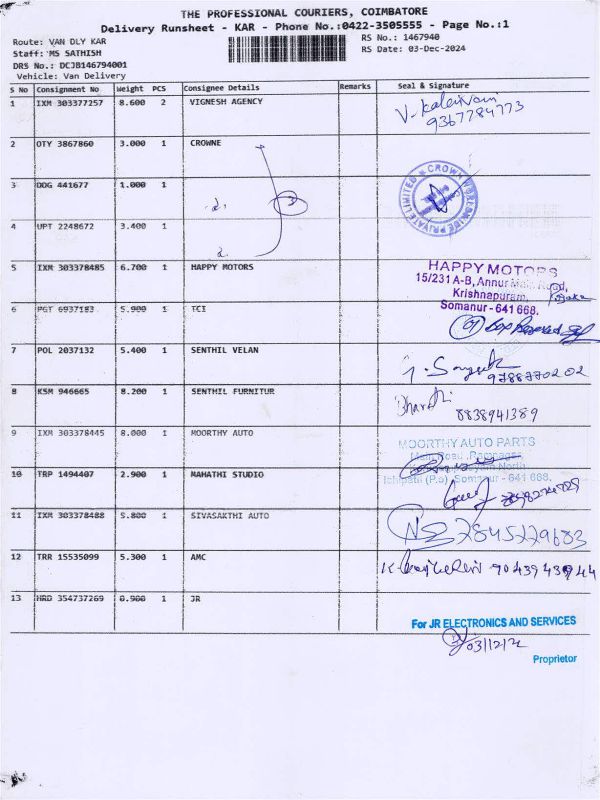 THE PROFESSIONAL COURIERS, COIMBATORE
Delivery Runsheet - KAR - Phone No.:0422-3505555 - Page No.:1
Route: VAN DLY KAR
RS No.: 1467940
Staff: MS SATHISH
RS Date: 03-Dec-2024
DRS No.: DCJB146794001
Vehicle: Van Delivery
S No Consignment No Weight PCS Consignee Details Remarks Seal & Signature
1 IXM 303377257 8.600 2 VIGNESH AGENCY
V. Kaleivani
9367784773
2 OTY 3867860 3.000 1 CROWNE
CROWN WORLDWIDE PRIVATE LIMITED
3 DDG 441677 1.000 1
3
4 UPT 2248672 3.400 1
5 IXM 303378485 6.700 1 HAPPY MOTORS
HAPPY MOTORS
15/231 A-B, Annur Main Road,
Krishnapuram,
Somanur - 641 668.
6 PGT 6937183 5.900 1 TCI
7 POL 2037132 5.400 1 SENTHIL VELAN
9788770202
8 KSM 946665 8.200 1 SENTHIL FURNITUR
Bharathi
8838941389
9 IXM 303378445 8.000 1 MOORTHY AUTO
MOORTHY AUTO PARTS
(P.o) Somanur - 641 668.
10 TRP 1494407 2.900 1 MAHATHI STUDIO
11 IXM 303378488 5.800 1 SIVASAKTHI AUTO
2845229683
12 TRR 15535099 5.300 1 AMC
9043943944
13 HRD 354737269 0.900 1 JR
For JR ELECTRONICS AND SERVICES
03/12/24
Proprietor